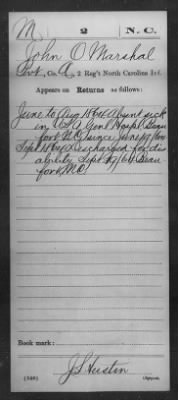 M 2 N.C.
John O Marshal
Pvt., Co. A, 2 Reg't North Carolina Inf.
Appears on Returns as follows:
June to Aug 1864 Absent sick
in U.S.A. Genl Hospl Beau
fort N.C. since June
Sept 1864 Discharged for dis
ability Sept 64 Beau
fort N.C.
Book mark:
J S Hustin
(546) Copyist.